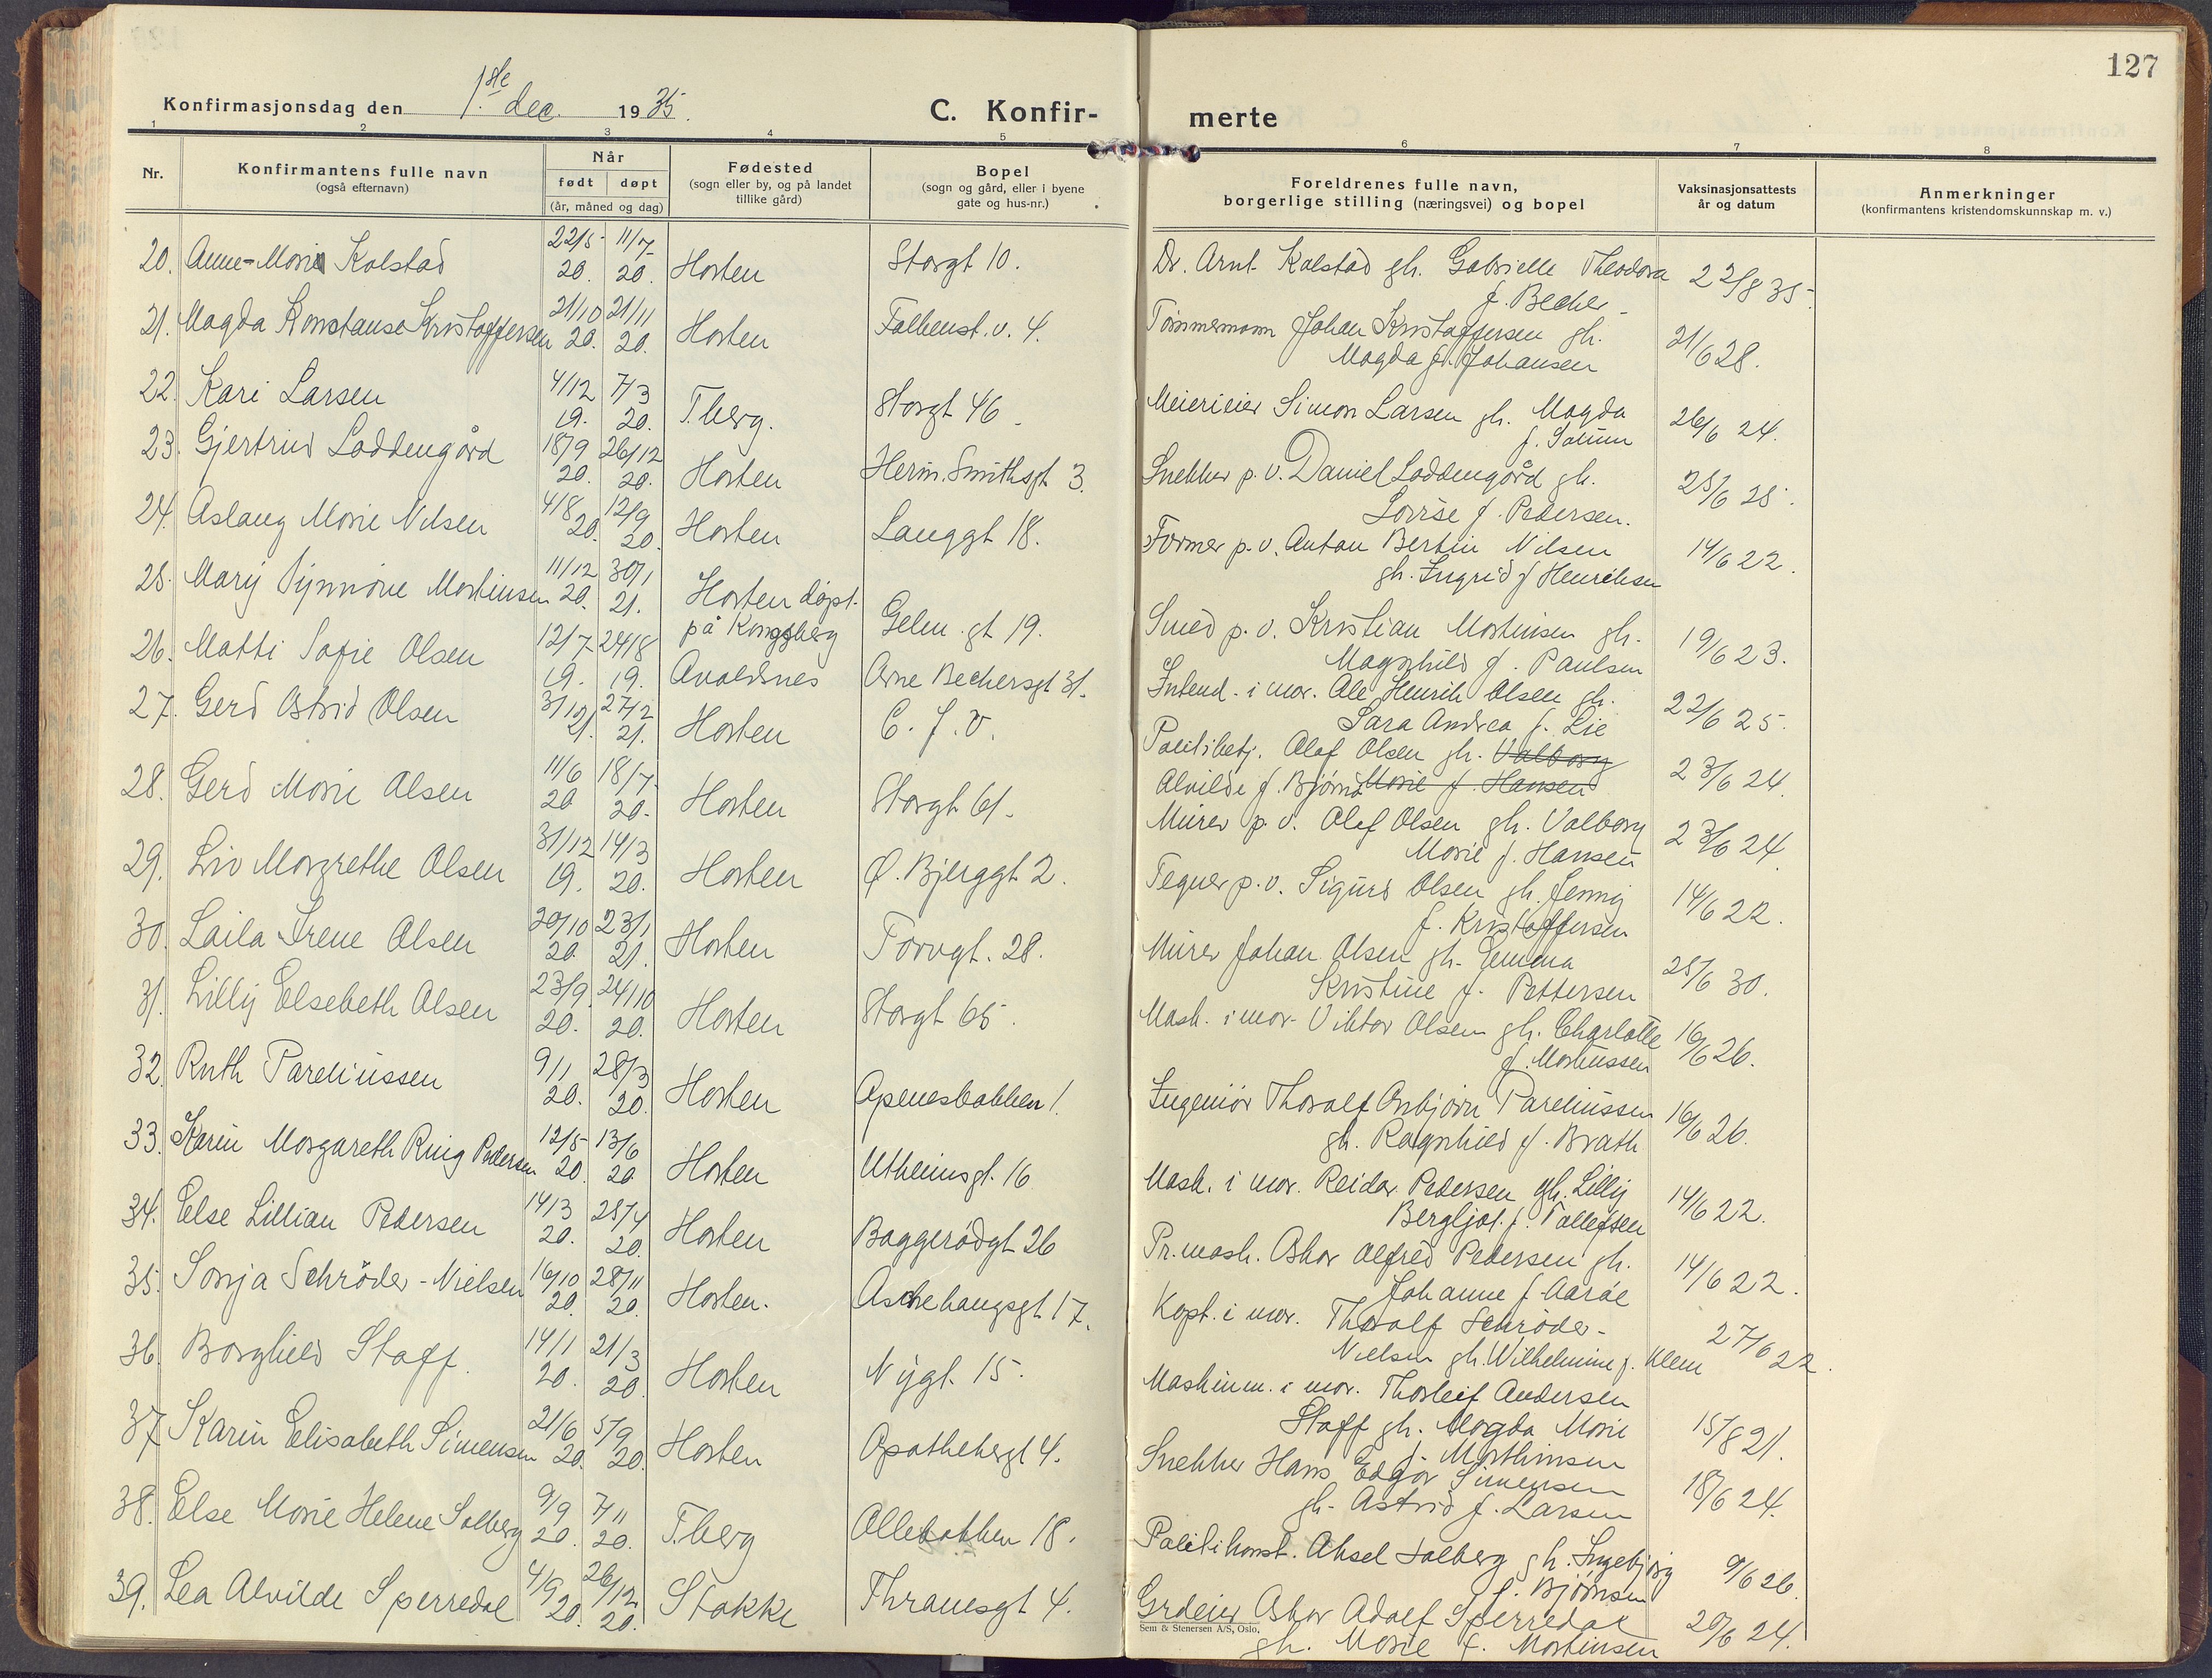 127
Konfirmasjonsdag den 1.ste dec. 1935.
C. Konfir-
merte
1 2 3 4 5 6 7 8
Nr.
Konfirmantens fulle navn
(også efternavn)
Når
født døpt
(år, måned og dag)
Fødested
(sogn eller by, og på landet
tillike gård)
Bopel
(sogn og gård, eller i byene
gate og hus-nr.)
Foreldrenes fulle navn,
borgerlige stilling (næringsvei) og bopel
Vaksinasjonsattests
år og datum
Anmerkninger
(konfirmantens kristendomskunnskap m. v.)
20. Anne-Marie Kolstad 22/5 20. 11/7 20. Horten Storgt 10.
Dr. Arnt Kolstad gh. Gabrielle Theodora
f. Becher 22/8 35
21. Magda Konstanse Kristoffersen 21/10 20. 21/11 20. Horten Falkenst. v. 4.
Tømmermann Johan Kristoffersen gh.
Magda f. Johansen 21/6 28.
22. Kari Larsen 4/12 19. 7/3 20. T.berg. Storgt 46
Meierieier Simon Larsen gh. Magda
f. Solum 26/6 24.
23. Gjertrud Loddengård 18/9 20. 26/12 20. Horten Herm. Smithsgt 3.
Snekker p. v. Daniel Loddengård gh.
Lovise f. Pedersen. 25/6 25.
24. Aslaug Marie Nilsen 4/8 20. 12/9 20. Horten Langgt 18.
Former p. v. Anton Bertin Nilsen
gh. Ingrid f Henriksen 14/6 22.
25. Mary Synnöve Martinsen 11/12 20. 30/1 21. Horten døpt
på Kongsberg Gelen. gt 19.
Smed p. v. Kristian Martinsen gh.
Magnhild f. Paulsen 19/6 23.
26. Matti Sofie Olsen 12/7 19. 24/8 19. Avaldsnes Arne Bechersgt 31.
Intend. i mar. Ole Henrik Olsen gh.
Sara Andrea f. Lie 22/6 25.
27. Gerd Astrid Olsen 3/12 21. 27/2 21. Horten C. J. V.
Politibetj. Olaf Olsen gh. Valborg
Alvilde f. Bjørnø Marie f. Hansen 23/6 24.
28. Gerd Marie Olsen 11/6 20 18/7 20. Horten Storgt 61.
Murer p. v. Olaf Olsen gh. Valborg
Marie f. Hansen 23/6 24
29. Liv Margrethe Olsen 31/12 19. 14/3 20. Horten Ø. Bjerggt 2.
Tegner p. v. Sigurd Olsen gh. Jenny
f. Kristoffersen 14/6 22.
30. Laila Irene Olsen 20/10 20. 23/1 21. Horten Torvgt. 28.
Murer Johan Olsen gh. Emma
Kristine f. Pettersen 25/6 30.
31. Lilly Elsebeth Olsen 23/9 20. 24/10 20. Horten Storgt 65.
Mask. i mar. Viktor Olsen gh. Charlotte
f. Martinssen 16/6 26.
32. Ruth Pareliussen 9/1 20. 28/3 20. Horten Apenesbakken 1.
Ingeniör Thoralf Asbjørn Pareliussen
gh. Ragnhild f. Brath 16/6 26.
33. Karin Margareth Ring Pedersen 12/5 20. 13/6 20. Horten Utheimsgt. 16
Mask. i mar. Reidar Pedersen gh. Lilly
Bergljot f. Tollefsen 14/6 22.
34. Else Lillian Pedersen 14/3 20. 25/4 20. Horten Baggerødgt 26
Pr. mask. Oskar Alfred Pedersen gh.
Johanne f. Aaröe 14/6 22.
35. Sonja Schröder-Nielsen 16/10 20. 28/11 20. Horten. Aschehaugsgt 17.
Kapt. i mar. Thoralf Schröder-
Nielsen gh. Wilhelmine f. Klem 27/6 22.
36. Borghild Staff. 14/1 20. 21/3 20. Horten Nygt. 15.
Maskinm. i mar. Thorleif Andersen
Staff gh. Magda Marie
f. Marthinsen 15/8 21.
37. Karin Elisabeth Simensen 21/6 20. 5/9 20. Horten Apothekergt 4.
Snekker Hans Edgar Simensen
gh. Astrid f. Larsen 18/6 24.
38. Else Marie Helene Solberg 9/9 20. 7/11 20. T.berg Ollebakken 18.
Politikonst. Aksel Solberg gh. Ingebjørg
f. Bjørnsen 9/6 26.
39. Lea Alvilde Sperredal 4/9 20. 26/12 20. Stokke Thranesgt 4.
Grdeier Oskar Adolf Sperredal
gh. Marie f. Martinsen 20/6 24.
Sem & Stenersen A/S, Oslo.